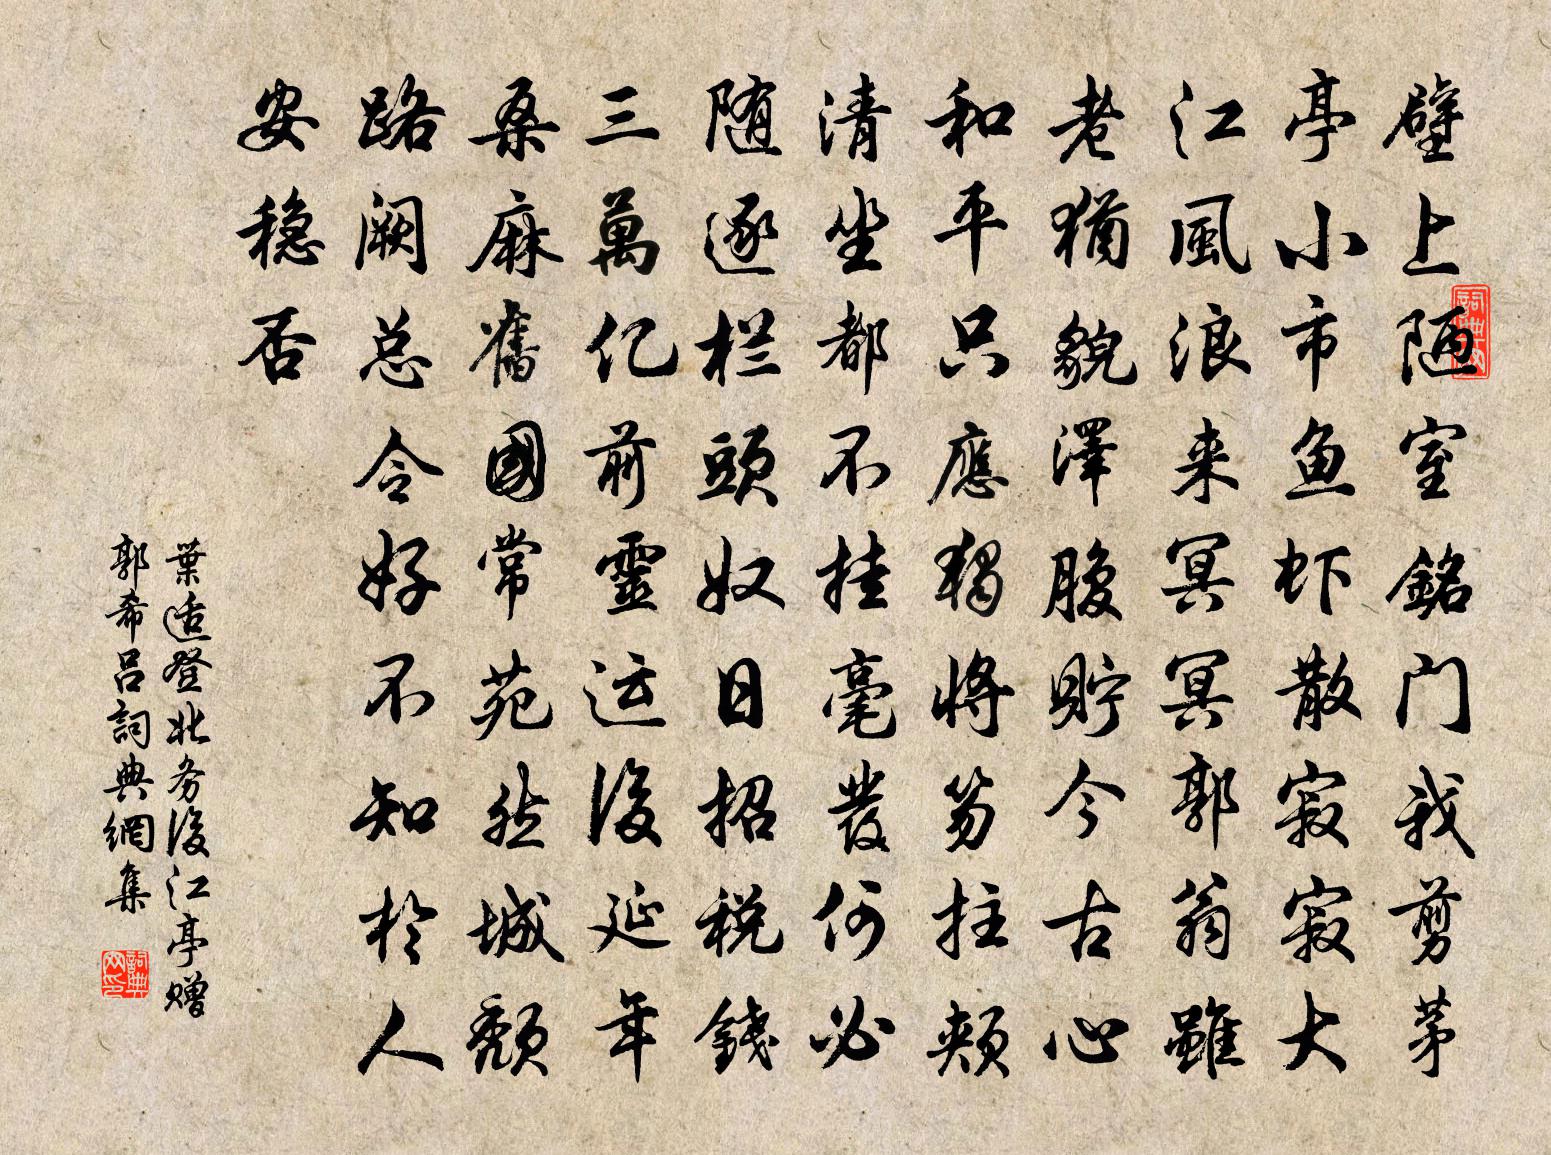 壁上陋室銘门我剪茅
亭小市魚虾散寂寂大
江風浪来冥冥郭翁雖
老猶貌澤腹貯今古心
和平只應獨将笏拄頰
清坐都不挂毫發何必
随逐栏頭奴日招税錢
三萬亿前靈运後延年
桑麻舊國常苑然城颓
路阙总令好不知於人
安穏否
葉适登北务後江亭赠
郭希吕詞典網集
詞典網